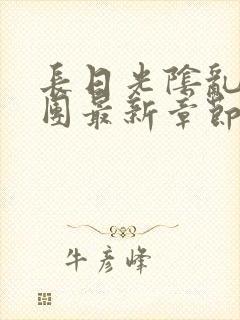 長日光陰亂
團最新章節
牛彥峰